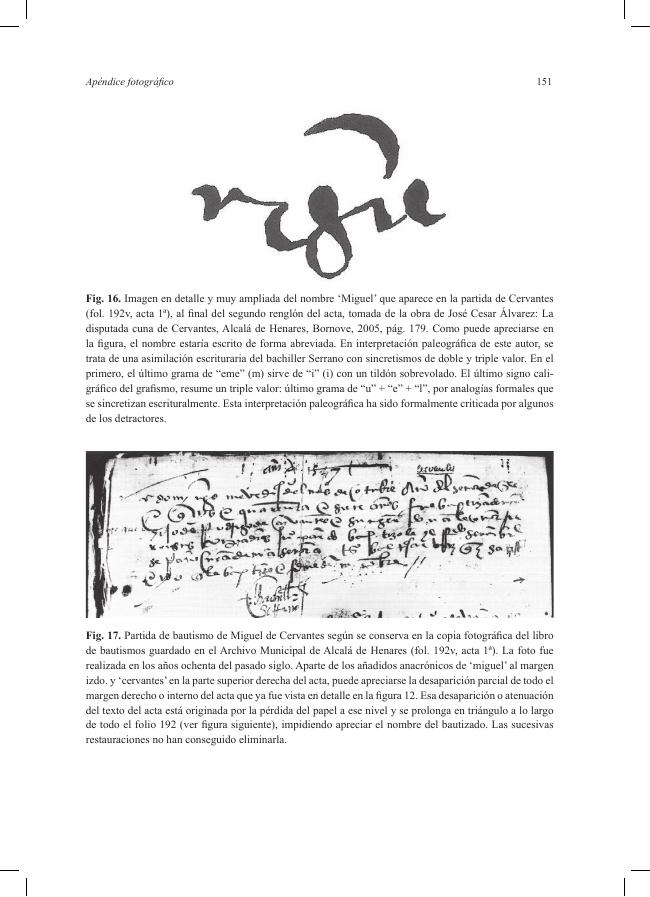 Apéndice fotográfico 151
Fig. 16. Imagen en detalle y muy ampliada del nombre ‘Miguel’ que aparece en la partida de Cervantes
(fol. 192v, acta 1ª), al final del segundo renglón del acta, tomada de la obra de José Cesar Álvarez: La
disputada cuna de Cervantes, Alcalá de Henares, Bornove, 2005, pág. 179. Como puede apreciarse en
la figura, el nombre estaría escrito de forma abreviada. En interpretación paleográfica de este autor, se
trata de una asimilación escrituraria del bachiller Serrano con sincretismos de doble y triple valor. En el
primero, el último grama de “eme” (m) sirve de “i” (i) con un tildón sobrevolado. El último signo cali-
gráfico del grafismo, resume un triple valor: último grama de “u” + “e” + “l”, por analogías formales que
se sincretizan escrituralmente. Esta interpretación paleográfica ha sido formalmente criticada por algunos
de los detractores.
Fig. 17. Partida de bautismo de Miguel de Cervantes según se conserva en la copia fotográfica del libro
de bautismos guardado en el Archivo Municipal de Alcalá de Henares (fol. 192v, acta 1ª). La foto fue
realizada en los años ochenta del pasado siglo. Aparte de los añadidos anacrónicos de ‘miguel’ al margen
izdo. y ‘cervantes’ en la parte superior derecha del acta, puede apreciarse la desaparición parcial de todo el
margen derecho o interno del acta que ya fue vista en detalle en la figura 12. Esa desaparición o atenuación
del texto del acta está originada por la pérdida del papel a ese nivel y se prolonga en triángulo a lo largo
de todo el folio 192 (ver figura siguiente), impidiendo apreciar el nombre del bautizado. Las sucesivas
restauraciones no han conseguido eliminarla.